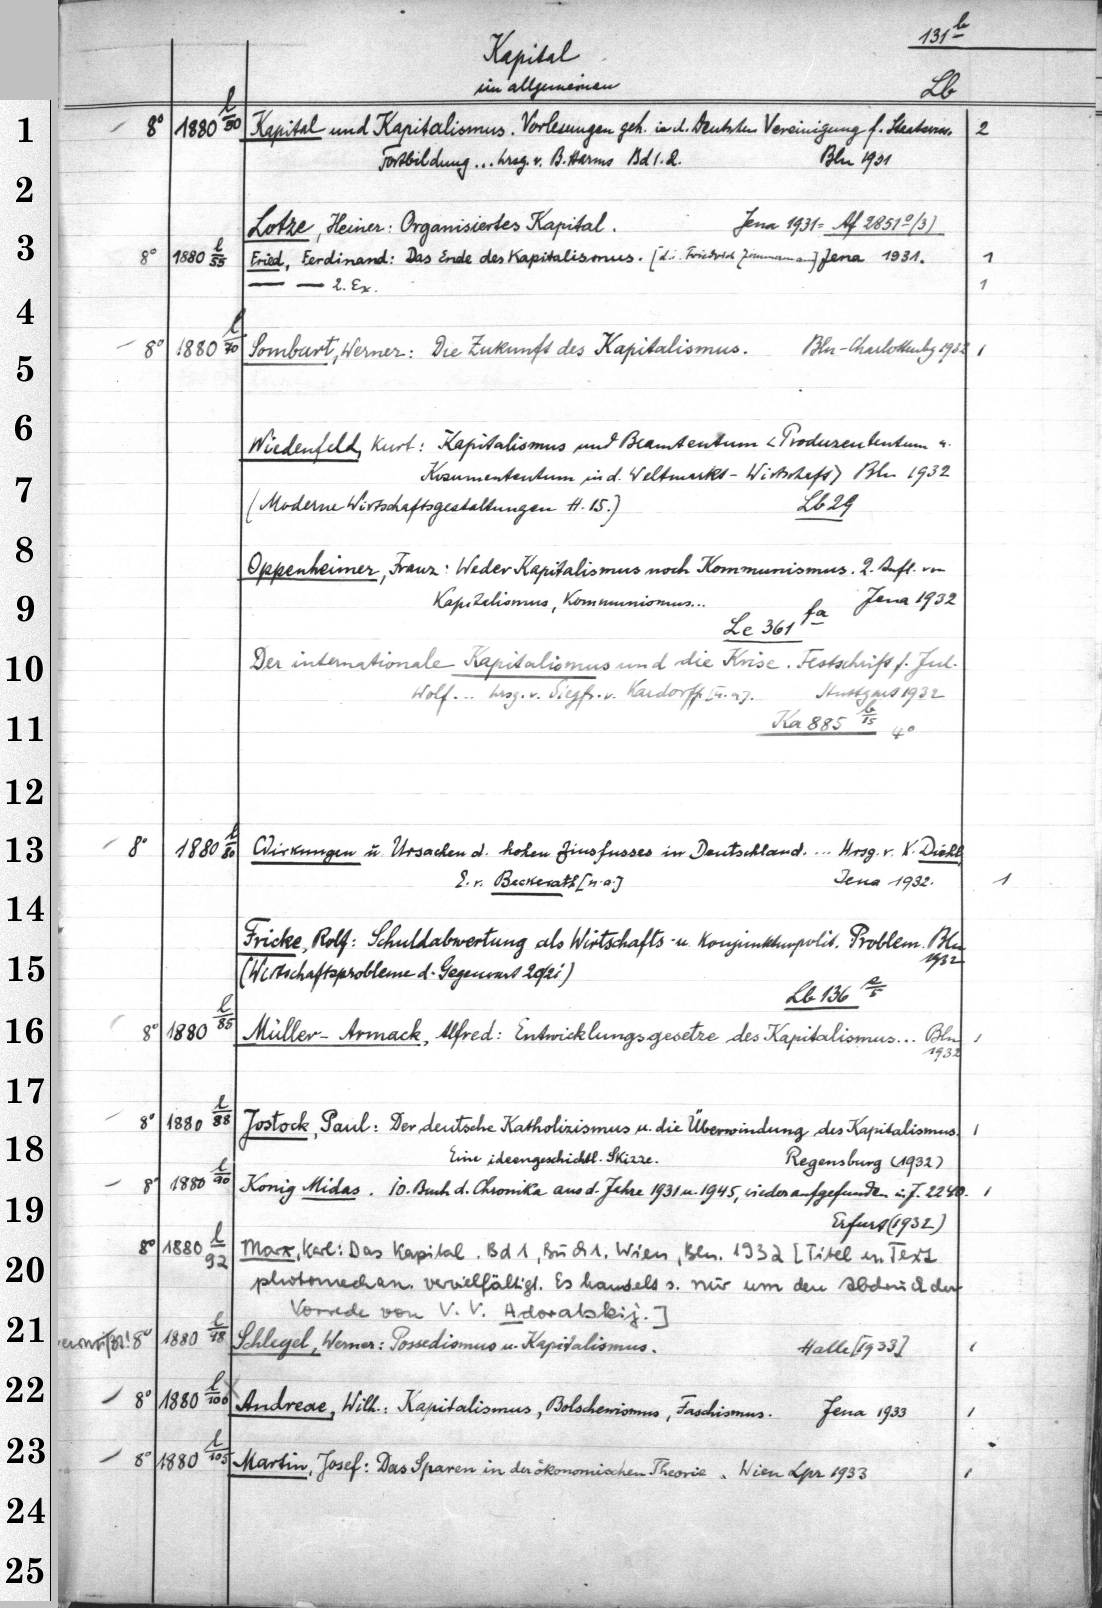 131 b
Kapital
im allgemeinen
Lb
1 8° 1880 l/50 Kapital und Kapitalismus. Vorlesungen geh. in d. Deutschen Vereinigung f. Staatswiss. 2
Fortbildung ... hrsg. v. B. Harms Bd 1. 2. Bln 1931
2
Lotze, Heiner: Organisiertes Kapital. Jena 1931 = Af 2851 o(3)
3 8° 1880 l/55 Fried, Ferdinand: Das Ende des Kapitalismus. [d. i. Friedrich Zimmermann] Jena 1931. 1
— — 2. Ex. 1
4
8° 1880 l/70 Sombart, Werner: Die Zukunft des Kapitalismus. Bln-Charlottenbg 1932 1
5
6
Wiedenfeld, Kurt: Kapitalismus und Beamtentum <Produzententum u.
Konsumententum in d. Weltmarkt-Wirtschaft> Bln 1932
7
(Moderne Wirtschaftsgestaltungen H. 15.) Lb 29
8
Oppenheimer, Franz: Weder Kapitalismus noch Kommunismus. 2. Aufl. von
9 Kapitalismus, Kommunismus... Jena 1932
Le 361 fa
10 Der internationale Kapitalismus und die Krise. Festschrift f. Jul.
Wolf... hrsg. v. Siegfr. v. Kardorff [u. a]. Stuttgart 1932
11 Ka 885 b/15 4°
12
13 8° 1880 l/80 Wirkungen u. Ursachen d. hohen Zinsfusses in Deutschland. ... Hrsg. v. K. Diehl,
E. v. Beckerath [u. a.] Jena 1932. 1
14
Fricke, Rolf: Schuldabwertung als Wirtschafts- u. Konjunkturpolit. Problem. Bln 1932
15 (Wirtschaftsprobleme d. Gegenwart 20/21)
Lb 136 e/5
16 8° 1880 l/85 Müller-Armack, Alfred: Entwicklungsgesetze des Kapitalismus... Bln 1932 1
17
8° 1880 l/88 Jostock, Paul: Der deutsche Katholizismus u. die Überwindung des Kapitalismus. 1
18 Eine ideengeschichtl. Skizze. Regensburg (1932)
8° 1880 l/90 König Midas. 10. Buch d. Chronika aus d. Jahre 1931 u. 1945, wiederaufgefunden i. J. 2240. 1
19 Erfurt (1932)
8° 1880 l/92 Marx, Karl: Das Kapital. Bd 1, Buch 1. Wien, Bln. 1932 [Titel u. Text
20 photomechan. vervielfältigt. Es handelt s. nur um den Abdruck der
Vorrede von V. V. Adoratskij.]
21 8° 1880 l/98 Schlegel, Werner: Possedismus u. Kapitalismus. Halle [1933] 1
22 8° 1880 l/100 Andreae, Wilh.: Kapitalismus, Bolschewismus, Faschismus. Jena 1933 1
23 8° 1880 l/105 Martin, Josef: Das Sparen in der ökonomischen Theorie. Wien Lpz 1933 1
24
25